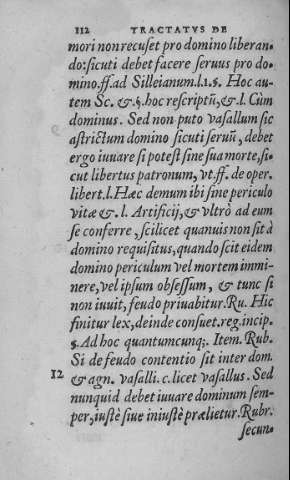 112 TRACTATVS DE
mori non recuset pro domino liberan-
do: sicuti debet facere seruus pro do-
mino. ff. ad Silleianum. l. 1. §. Hoc au-
tem Sc. & §. hoc rescriptū, & l. Cùm
dominus. Sed non puto vasallum sic
astrictum domino sicuti seruū, debet
ergo iuuare si potest sine sua morte, si-
cut libertus patronum, vt. ff. de oper.
libert. l. Hæc demum ibi sine periculo
vitæ & l. Artificij, & vltrò ad eum
se conferre, scilicet quanuis non sit à
domino requisitus, quando scit eidem
domino periculum vel mortem immi-
nere, vel ipsum obsessum, & tunc si
non iuuit, feudo priuabitur. Ru. Hic
finitur lex, deinde consuet. reg. incip.
§. Ad hoc quantumcunq;. Item. Rub.
Si de feudo contentio sit inter dom.
12 & agn. vasalli. c. licet vasallus. Sed
nunquid debet iuuare dominum sem-
per, iustè siue iniustè prælietur. Rubr.
secun-